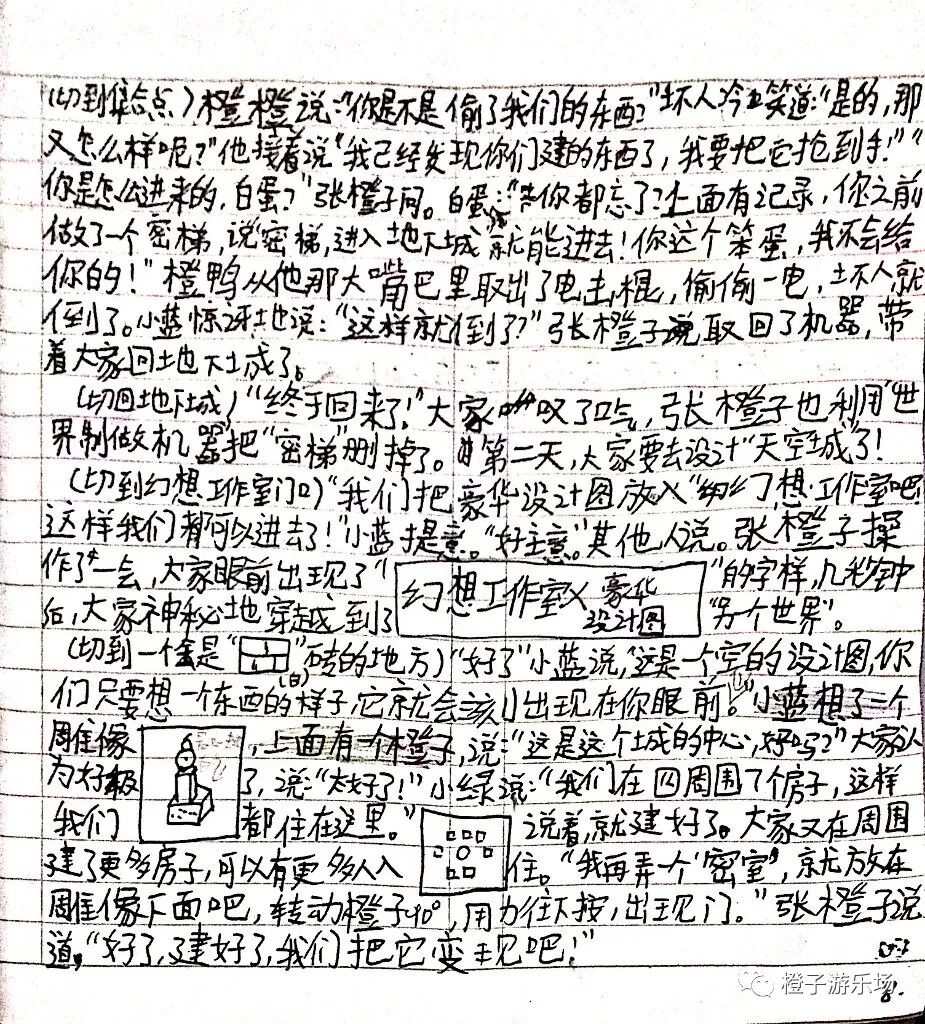 (切到集合点)橙橙说:“你是不是偷了我们的东西?”坏人冷笑道:“是的,那
又怎么样呢?”他接着说“我已经发现你们建的东西了,我要把它抢到手!”“
你是怎么进来的,白蛋?”张橙子问。白蛋:“你都忘了?上面有记录,你之前
做了一个密梯,说“密梯,进入地下城”就能进去!你这个笨蛋,我不会给
你的!”橙鸭从他那大嘴巴里取出了电击棍,偷偷一电,坏人就
倒了。小蓝惊讶地说:“这样就倒了?”张橙子说取回了机器,带
着大家回地下城了。
(切回地下城)“终于回来了!”大家叹了口气,张橙子也利用“世
界制做机器”把“密梯”删掉了。第二天,大家要去设计“天空城”了!
(切到幻想工作室门口)“我们把豪华设计图放入“幻想工作室吧!
这样我们都可以进去了!”小蓝提意。“好主意。”其他人说。张橙子操
作了一会,大家眼前出现了“
幻想工作室× 豪华
设计图
”的字样,几秒钟
后,大家神秘地穿越到了
“另个世界”。
(切到一个全是“
”砖的地方)“好了”小蓝说,“这是一个空的设计图,你
(白)
们只要想一个东西的样子,它就会该刂出现在你眼前。”小蓝想了一个
雕像
,上面有一个橙子,说:“这是这个城的中心,好吗?”大家认
为好极
了,说:“太好了!”小绿说:“我们在四周围7个房子,这样
我们
都住在这里。”
说着,就建好了。大家又在周围
建了更多房子,可以有更多人入
住。“我再弄一个‘密室’,就放在
雕像下面吧,转动橙子90°,用力往下按,出现门。”张橙子说
道,“好了,建好了,我们把它变现吧!”
8.
橙子游乐场